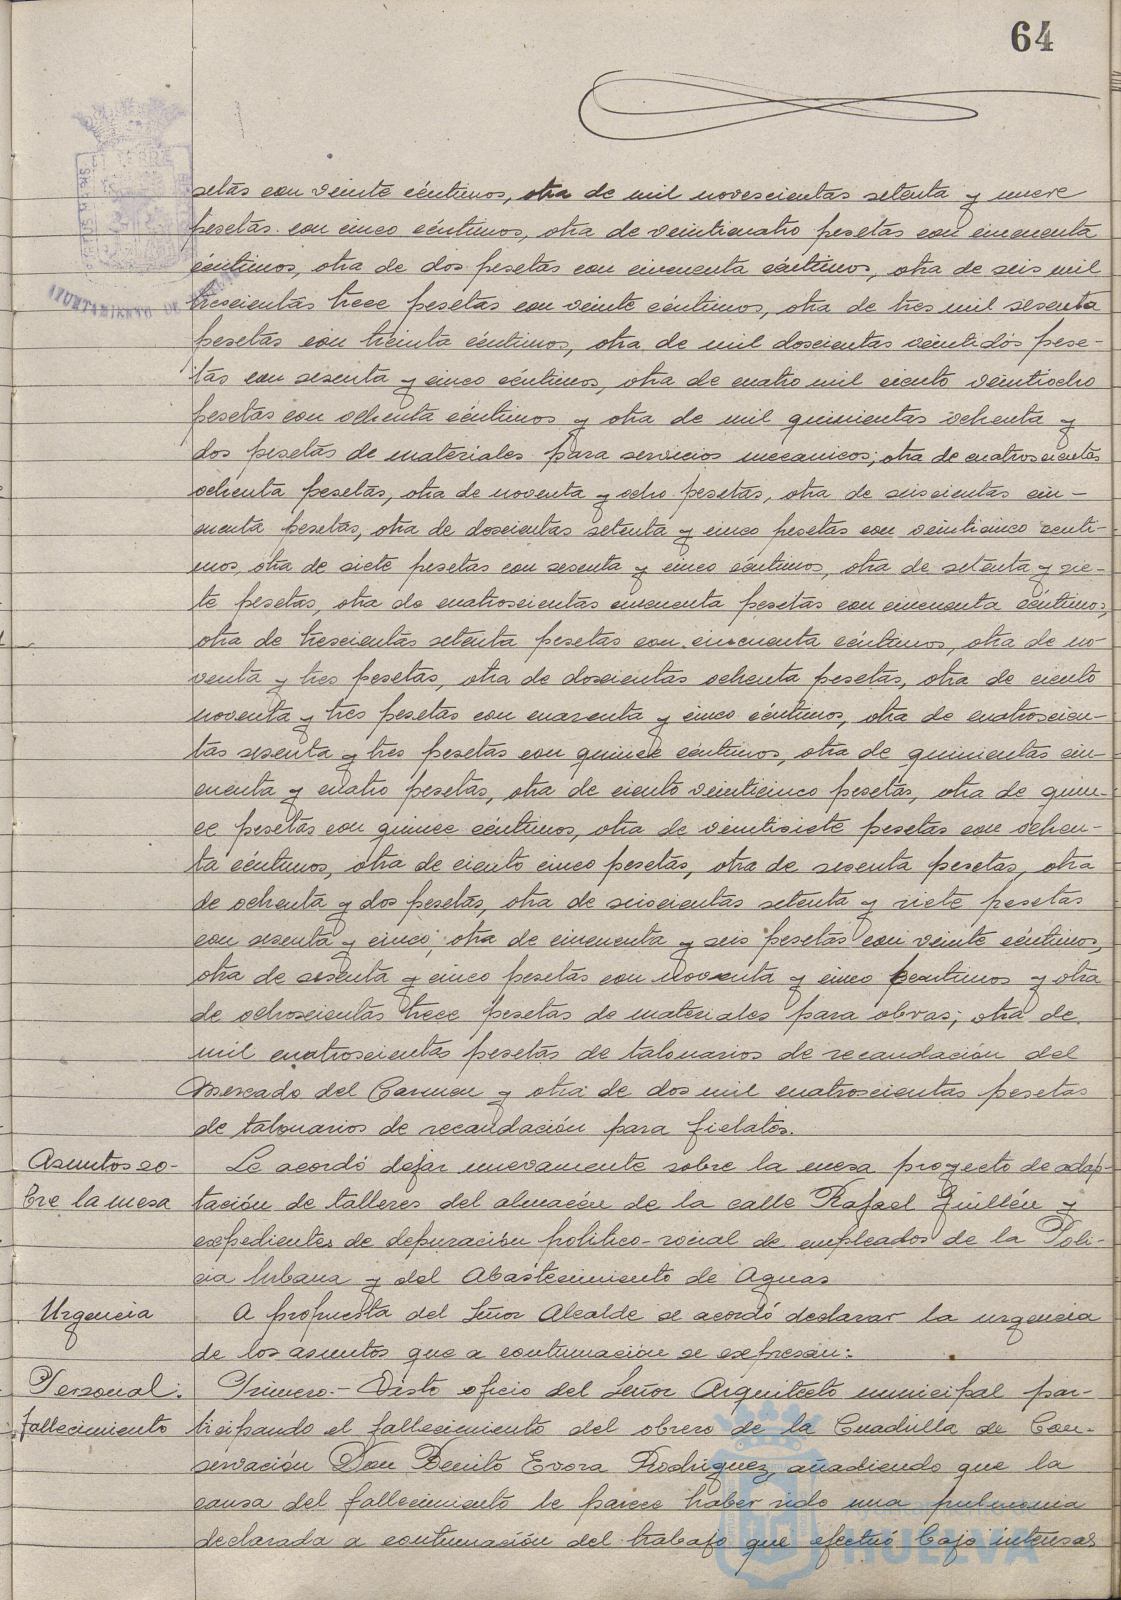 64
setas con veinte céntimos, otra de mil novescientas setenta y nueve
pesetas con cinco céntimos, otra de veinticuatro pesetas con cincuenta
céntimos, otra de dos pesetas con cincuenta céntimos, otra de seis mil
trescientas trece pesetas con veinte céntimos, otra de tres mil sesenta
pesetas con treinta céntimos, otra de mil doscientas veintidós pese-
tas con sesenta y cinco céntimos, otra de cuatro mil ciento veintiocho
pesetas con ochenta céntimos y otra de mil quinientas ochenta y
dos pesetas de materiales para servicios mecanicos; otra de cuatroscientas
ochenta pesetas, otra de noventa y ocho pesetas, otra de seiscientas cin-
cuenta pesetas, otra de doscientas setenta y cinco pesetas con veinticinco centi-
mos, otra de siete pesetas con sesenta y cinco céntimos, otra de setenta y sie-
te pesetas, otra de cuatroscientas cincuenta pesetas con cincuenta céntimos,
otra de trescientas setenta pesetas con cincuenta céntimos, otra de no-
venta y tres pesetas, otra de doscientas ochenta pesetas, otra de ciento
noventa y tres pesetas con cuarenta y cinco céntimos, otra de cuatroscien-
tas sesenta y tres pesetas con quince céntimos, otra de quinientas cin-
cuenta y cuatro pesetas, otra de ciento veinticinco pesetas, otra de quin-
ce pesetas con quince céntimos, otra de veintisiete pesetas con ochen-
ta céntimos, otra de ciento cinco pesetas, otra de sesenta pesetas, otra
de ochenta y dos pesetas, otra de seiscientas setenta y siete pesetas
con sesenta y cinco; otra de cincuenta y seis pesetas con veinte céntimos,
otra de sesenta y cinco pesetas con noventa y cinco centimos y otra
de ochoscientas trece pesetas de materiales para obras; otra de
mil cuatroscientas pesetas de talonarios de recaudación del
Mercado del Carmen y otra de dos mil cuatroscientas pesetas
de talonarios de recaudación para fielatos.
Asuntos so-
bre la mesa
Se acordó dejar nuevamente sobre la mesa proyecto de adap-
tación de talleres del almacén de la calle Rafael Guillén y
expedientes de depuración politico-social de empleados de la Poli-
cia Urbana y del Abastecimiento de Aguas
Urgencia
A propuesta del Señor Alcalde se acordó declarar la urgencia
de los asuntos que a continuación se expresan:
Personal:
fallecimiento
Primero.- Visto oficio del Señor Arquitecto municipal par-
ticipando el fallecimiento del obrero de la Cuadrilla de Con-
servación Don Benito Evora Rodriguez, añadiendo que la
causa del fallecimiento le parece haber sido una pulmonia
declarada a continuación del trabajo que efectuó bajo intensas
AYUNTAMIENTO DE
Ayuntamiento de
HUELVA